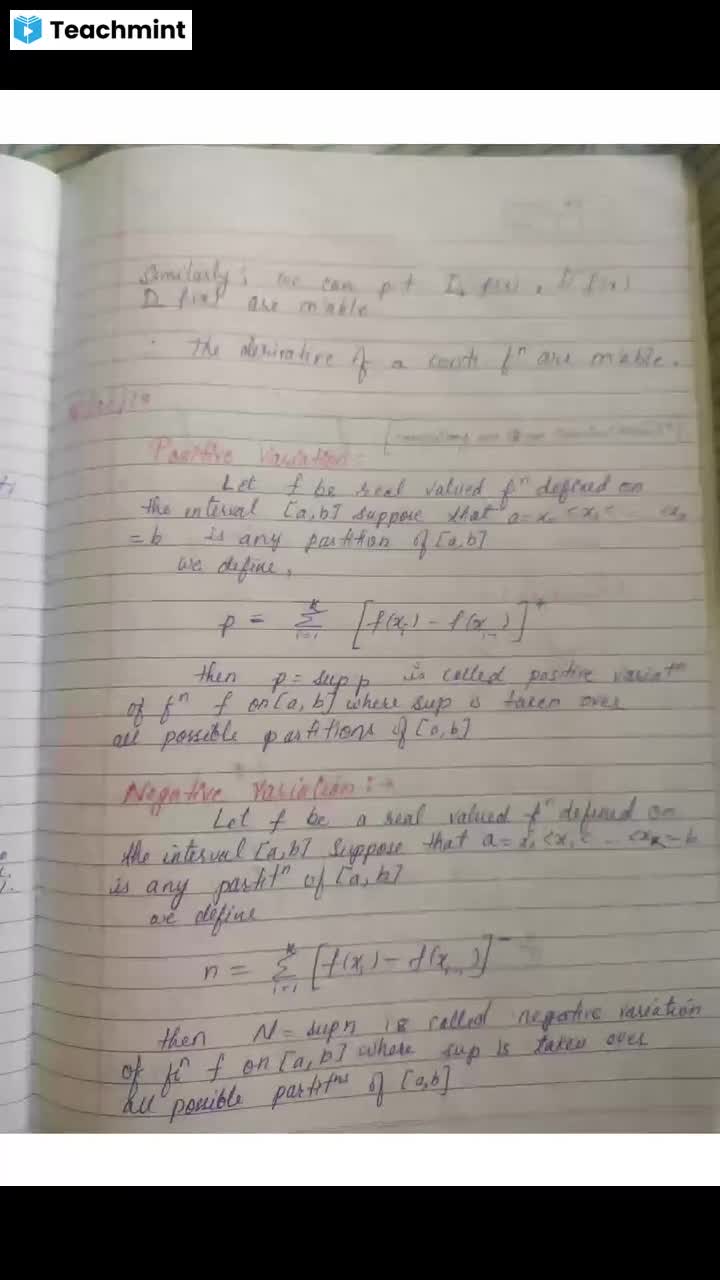 Teachmint
Similarly; we can p.t D₊ f(x), f(x)
D f(x) are m'able
∴ The derivative of a conti fⁿ are m'able.
Positive variation:-
Let f be real valued fⁿ defined on
the interval [a,b] suppose that a=x₀<x₁<--<xₖ
=b is any partition of [a,b]
we define,
p = Σᵢ₌₁ᵏ [f(xᵢ) - f(xᵢ₋₁)]⁺
then p = sup p is called positive variatⁿ
of fⁿ f on [a,b] where sup is taken over
all possible partitions of [a,b]
Negative variation:-
Let f be a real valued fⁿ defined on
the interval [a,b] suppose that a=x₀<x₁<--<xₖ=b
is any partitⁿ of [a,b]
we define
n = Σᵢ₌₁ᵏ [f(xᵢ) - f(xᵢ₋₁)]⁻
then N = sup n is called negative variation
of fⁿ f on [a,b] where sup is taken over
all possible partitⁿs of [a,b]